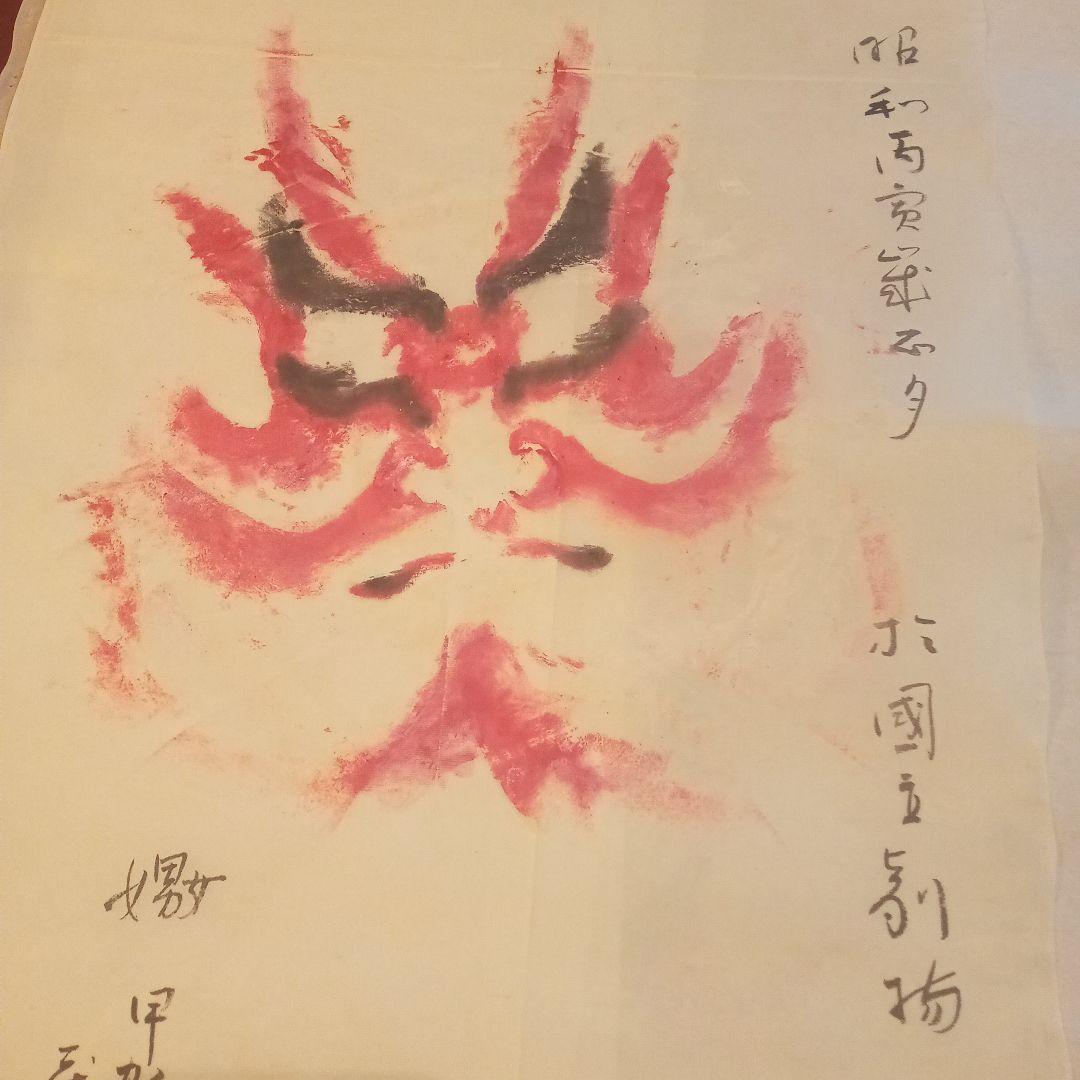 昭和丙寅歳正月
於國立劇場
嫐
甲